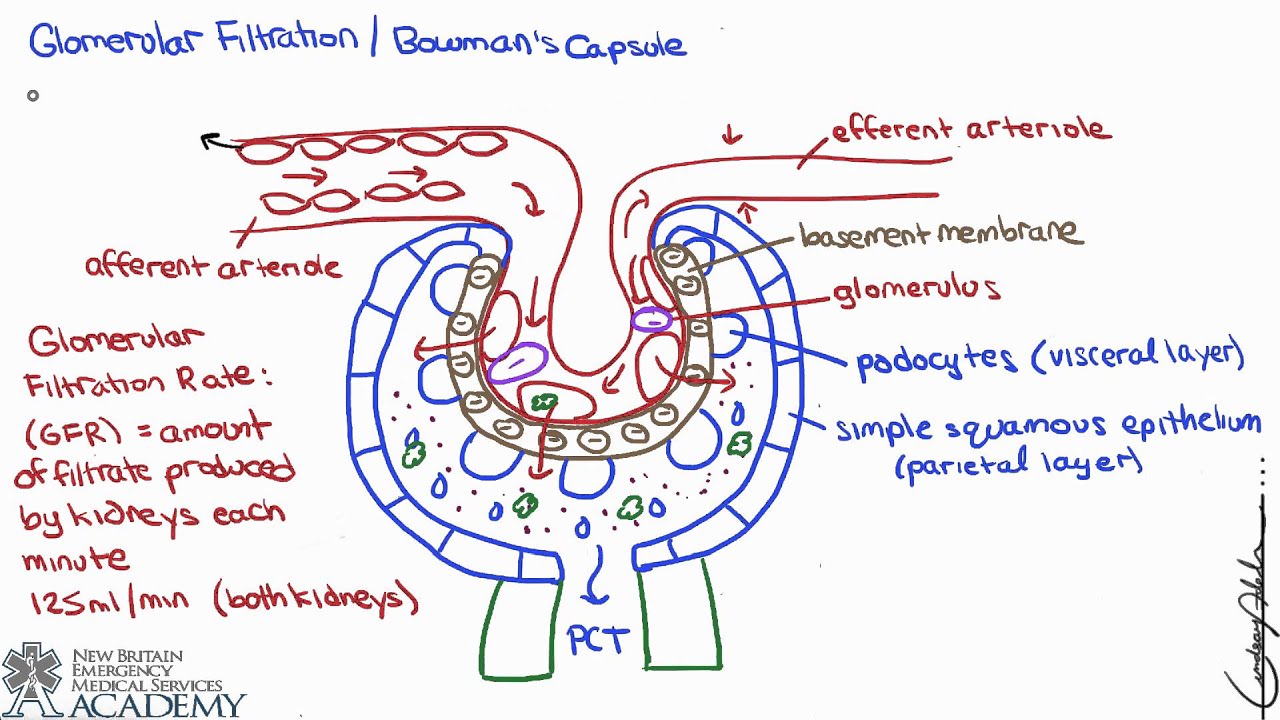 Glomerular Filtration / Bowman's Capsule
efferent arteriole
basement membrane
afferent arteriole
glomerulus
podocytes (visceral layer)
simple squamous epithelium
(parietal layer)
Glomerular
Filtration Rate:
(GFR) = amount
of filtrate produced
by kidneys each
minute
125ml/min (both kidneys)
PCT
NEW BRITAIN
EMERGENCY
MEDICAL SERVICES
ACADEMY